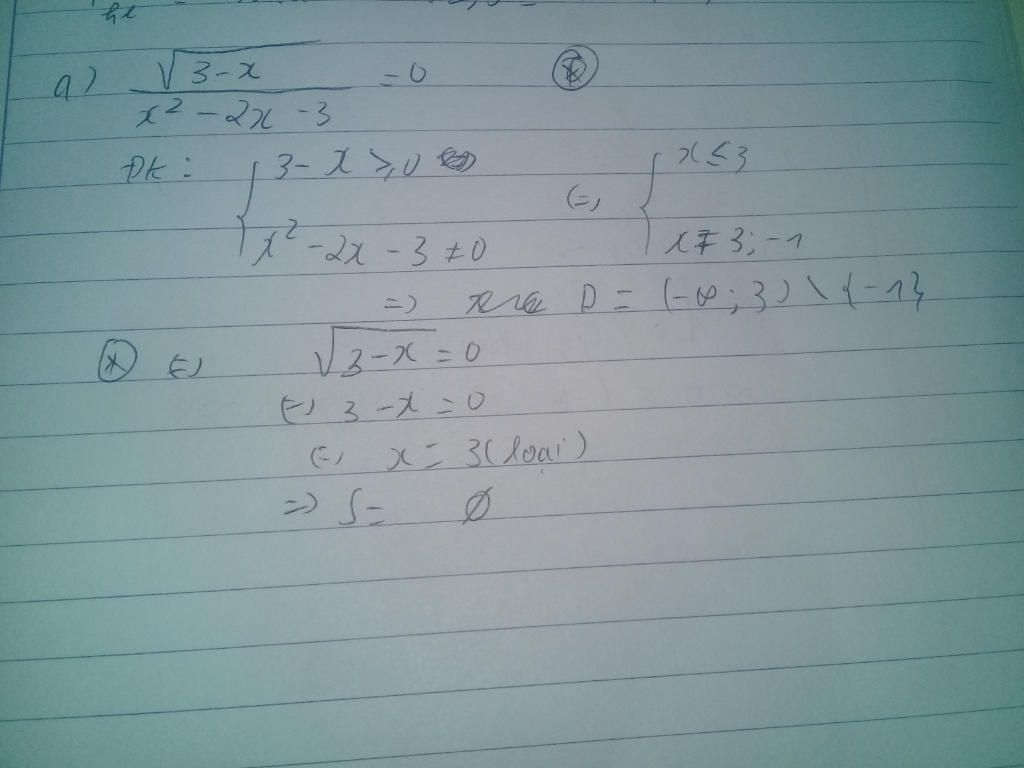 a) \frac{\sqrt{3-x}}{x^2-2x-3} = 0 (*)
ĐK: { 3-x ≥ 0 ; x^2-2x-3 ≠ 0 <=> { x ≤ 3 ; x ≠ 3; -1
=> D = (-∞; 3) \ {-1}
(*) <=> \sqrt{3-x} = 0
<=> 3-x = 0
<=> x = 3 (loại)
=> S = ∅